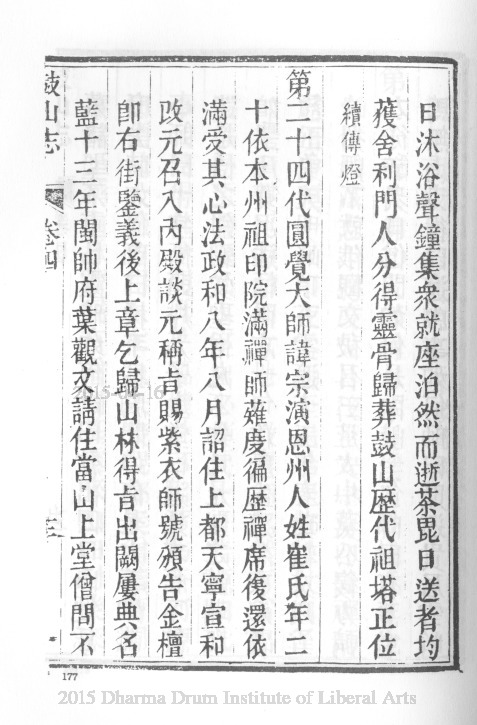 日沐浴聲鐘集衆就座泊然而逝茶毘日送者均
蒦舍利門人分得靈骨歸葬鼓山歷代祖塔正位
續傳燈
第二十四代圓覺大師諱宗演恩州人姓崔氏年二
十依本州祖印院滿禪師薙慶徧歷禪席復還依
滿受其心法政和八年八月詔住上都天寧宣和
改元召入內殿談元稱旨賜紫衣師號頒告金檀
卽右街鑒義後上章乞歸山林得旨出闕屢典名
藍十三年閩帥府葉觀文請住當山上堂僧問不
鼓山志 卷四
177
2015 Dharma Drum Institute of Liberal Arts